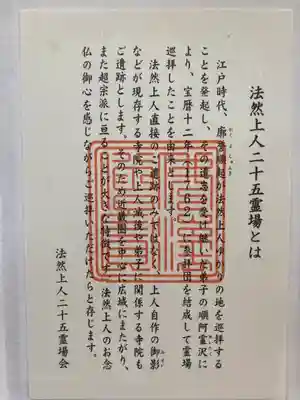 法然上人二十五霊場とは
江戸時代、廓誉順起が法然上人ゆかりの地を巡拝する
ことを発起し、その遺志を受け継いだ弟子の順阿霊沢に
より、宝暦十二年(1762)に参拝団を結成して霊場
巡拝したことを由来とします。
法然上人直接のご遺跡のみではなく、上人自作の御影
などが現存する寺院や上人滅後に弟子に関係する寺院も
ご遺跡とします。そのため近畿圏を中心に広域にまたがり、
また超宗派に亘ることが大きな特徴です。法然上人のお念
仏の御心を感じながらご巡拝いただけたらと存じます。
法然上人二十五霊場会